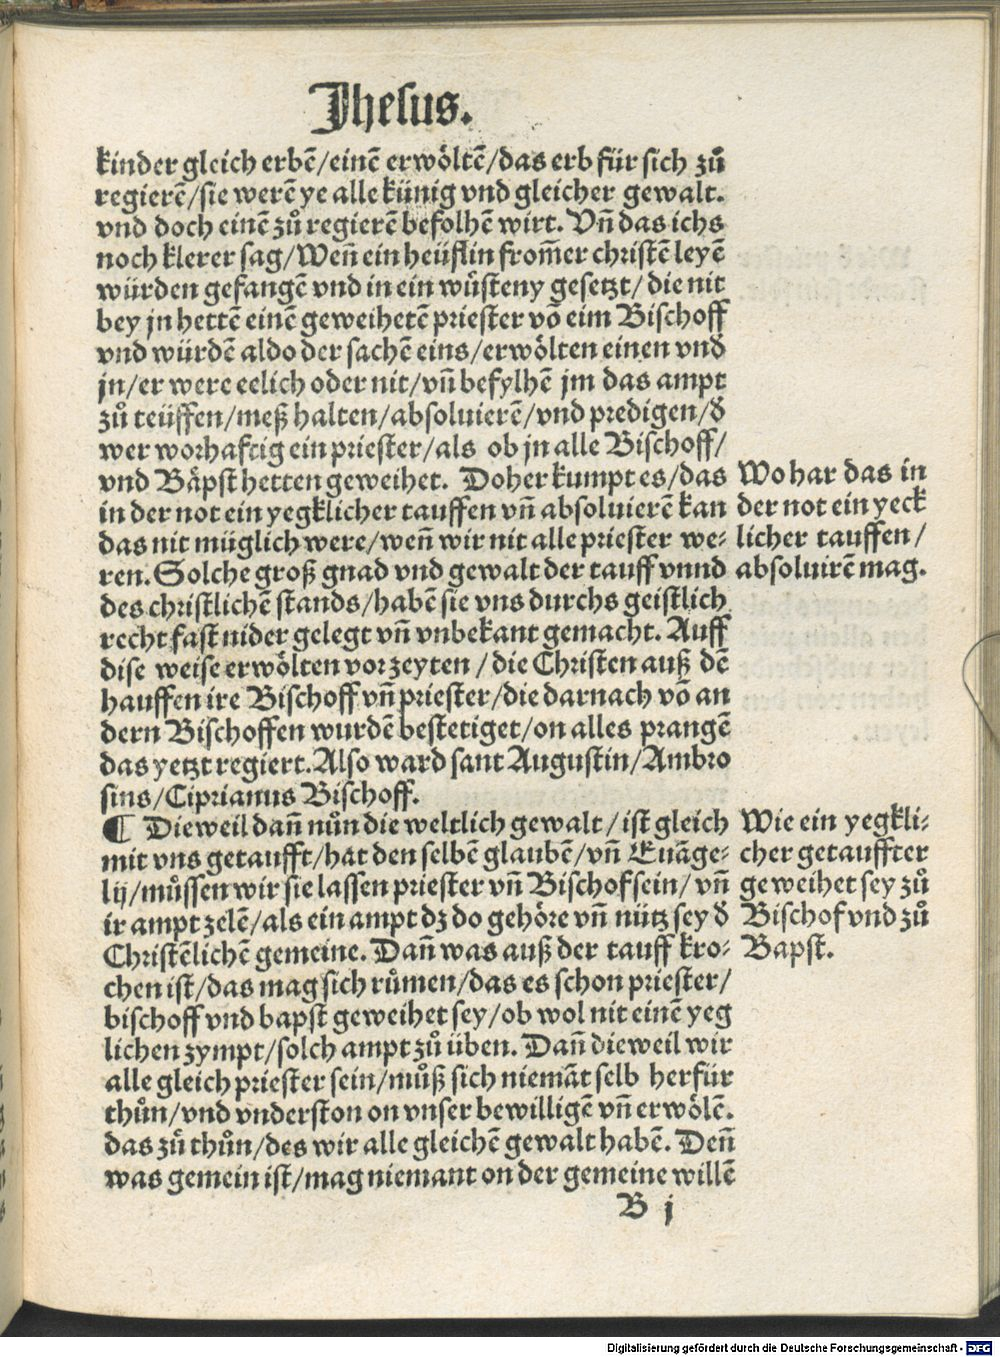 Jhesus.
kinder gleich erbē/einē erwöltē/das erb für sich zů
regierē/sie werē ye alle künig vnd gleicher gewalt.
vnd doch einē zů regierē befolhē wirt. Vn̄ das ichs
noch klerer sag/Wen̄ ein heüflin from̄er christē leyē
würden gefangē vnd in ein wůsteny gesetzt/ die nit
bey jn hettē einē geweihetē priester vō eim Bischoff
vnd würdē aldo der sachē eins/erwölten einen vnd
jn/er were eelich oder nit/vn̄ befylhē jm das ampt
zů teüffen/meß halten/absoluierē/vnd predigen/d̄
wer worhaftig ein priester/als ob jn alle Bischoff/
vnd Bäpst hetten geweihet. Doher kumpt es/das
in der not ein yegklicher tauffen vn̄ absoluierē kan
das nit müglich were/wen̄ wir nit alle priester we-
ren. Solche groß gnad vnd gewalt der tauff vnnd
des christlichē stands/habē sie vns durchs geistlich
recht fast nider gelegt vn̄ vnbekant gemacht. Auff
dise weise erwölten vorzeyten /die Christen auß dē
hauffen ire Bischoff vn̄ priester/die darnach vō an
dern Bischoffen wurdē bestetiget/on alles prangē
das yetzt regiert. Also ward sant Augustin/Ambro
sius/Ciprianus Bischoff.
¶ Dieweil dan̄ nůn die weltlich gewalt/ist gleich
mit vns getaufft/hat den selbē glaubē/vn̄ Euāge-
lij/můssen wir sie lassen priester vn̄ Bischof sein/vn̄
ir ampt zelē/als ein ampt dz do gehöre vn̄ nütz sey d̄
Christēlichē gemeine. Dan̄ was auß der tauff kro-
chen ist/das mag sich růmen/das es schon priester/
bischoff vnd bapst geweihet sey/ob wol nit einē yeg
lichen zympt/solch ampt zů üben. Dan̄ dieweil wir
alle gleich priester sein/můß sich niemāt selb herfür
thůn/vnd vnderston on vnser bewilligē vn̄ erwölē.
das zů thůn/des wir alle gleichē gewalt habē. Den̄
was gemein ist/mag niemant on der gemeine willē
B j
Wo har das in
der not ein yeck
licher tauffen/
absoluirē mag.
Wie ein yegkli-
cher getauffter
geweihet sey zů
Bischof vnd zů
Bapst.
Digitalisierung gefördert durch die Deutsche Forschungsgemeinschaft - DFG